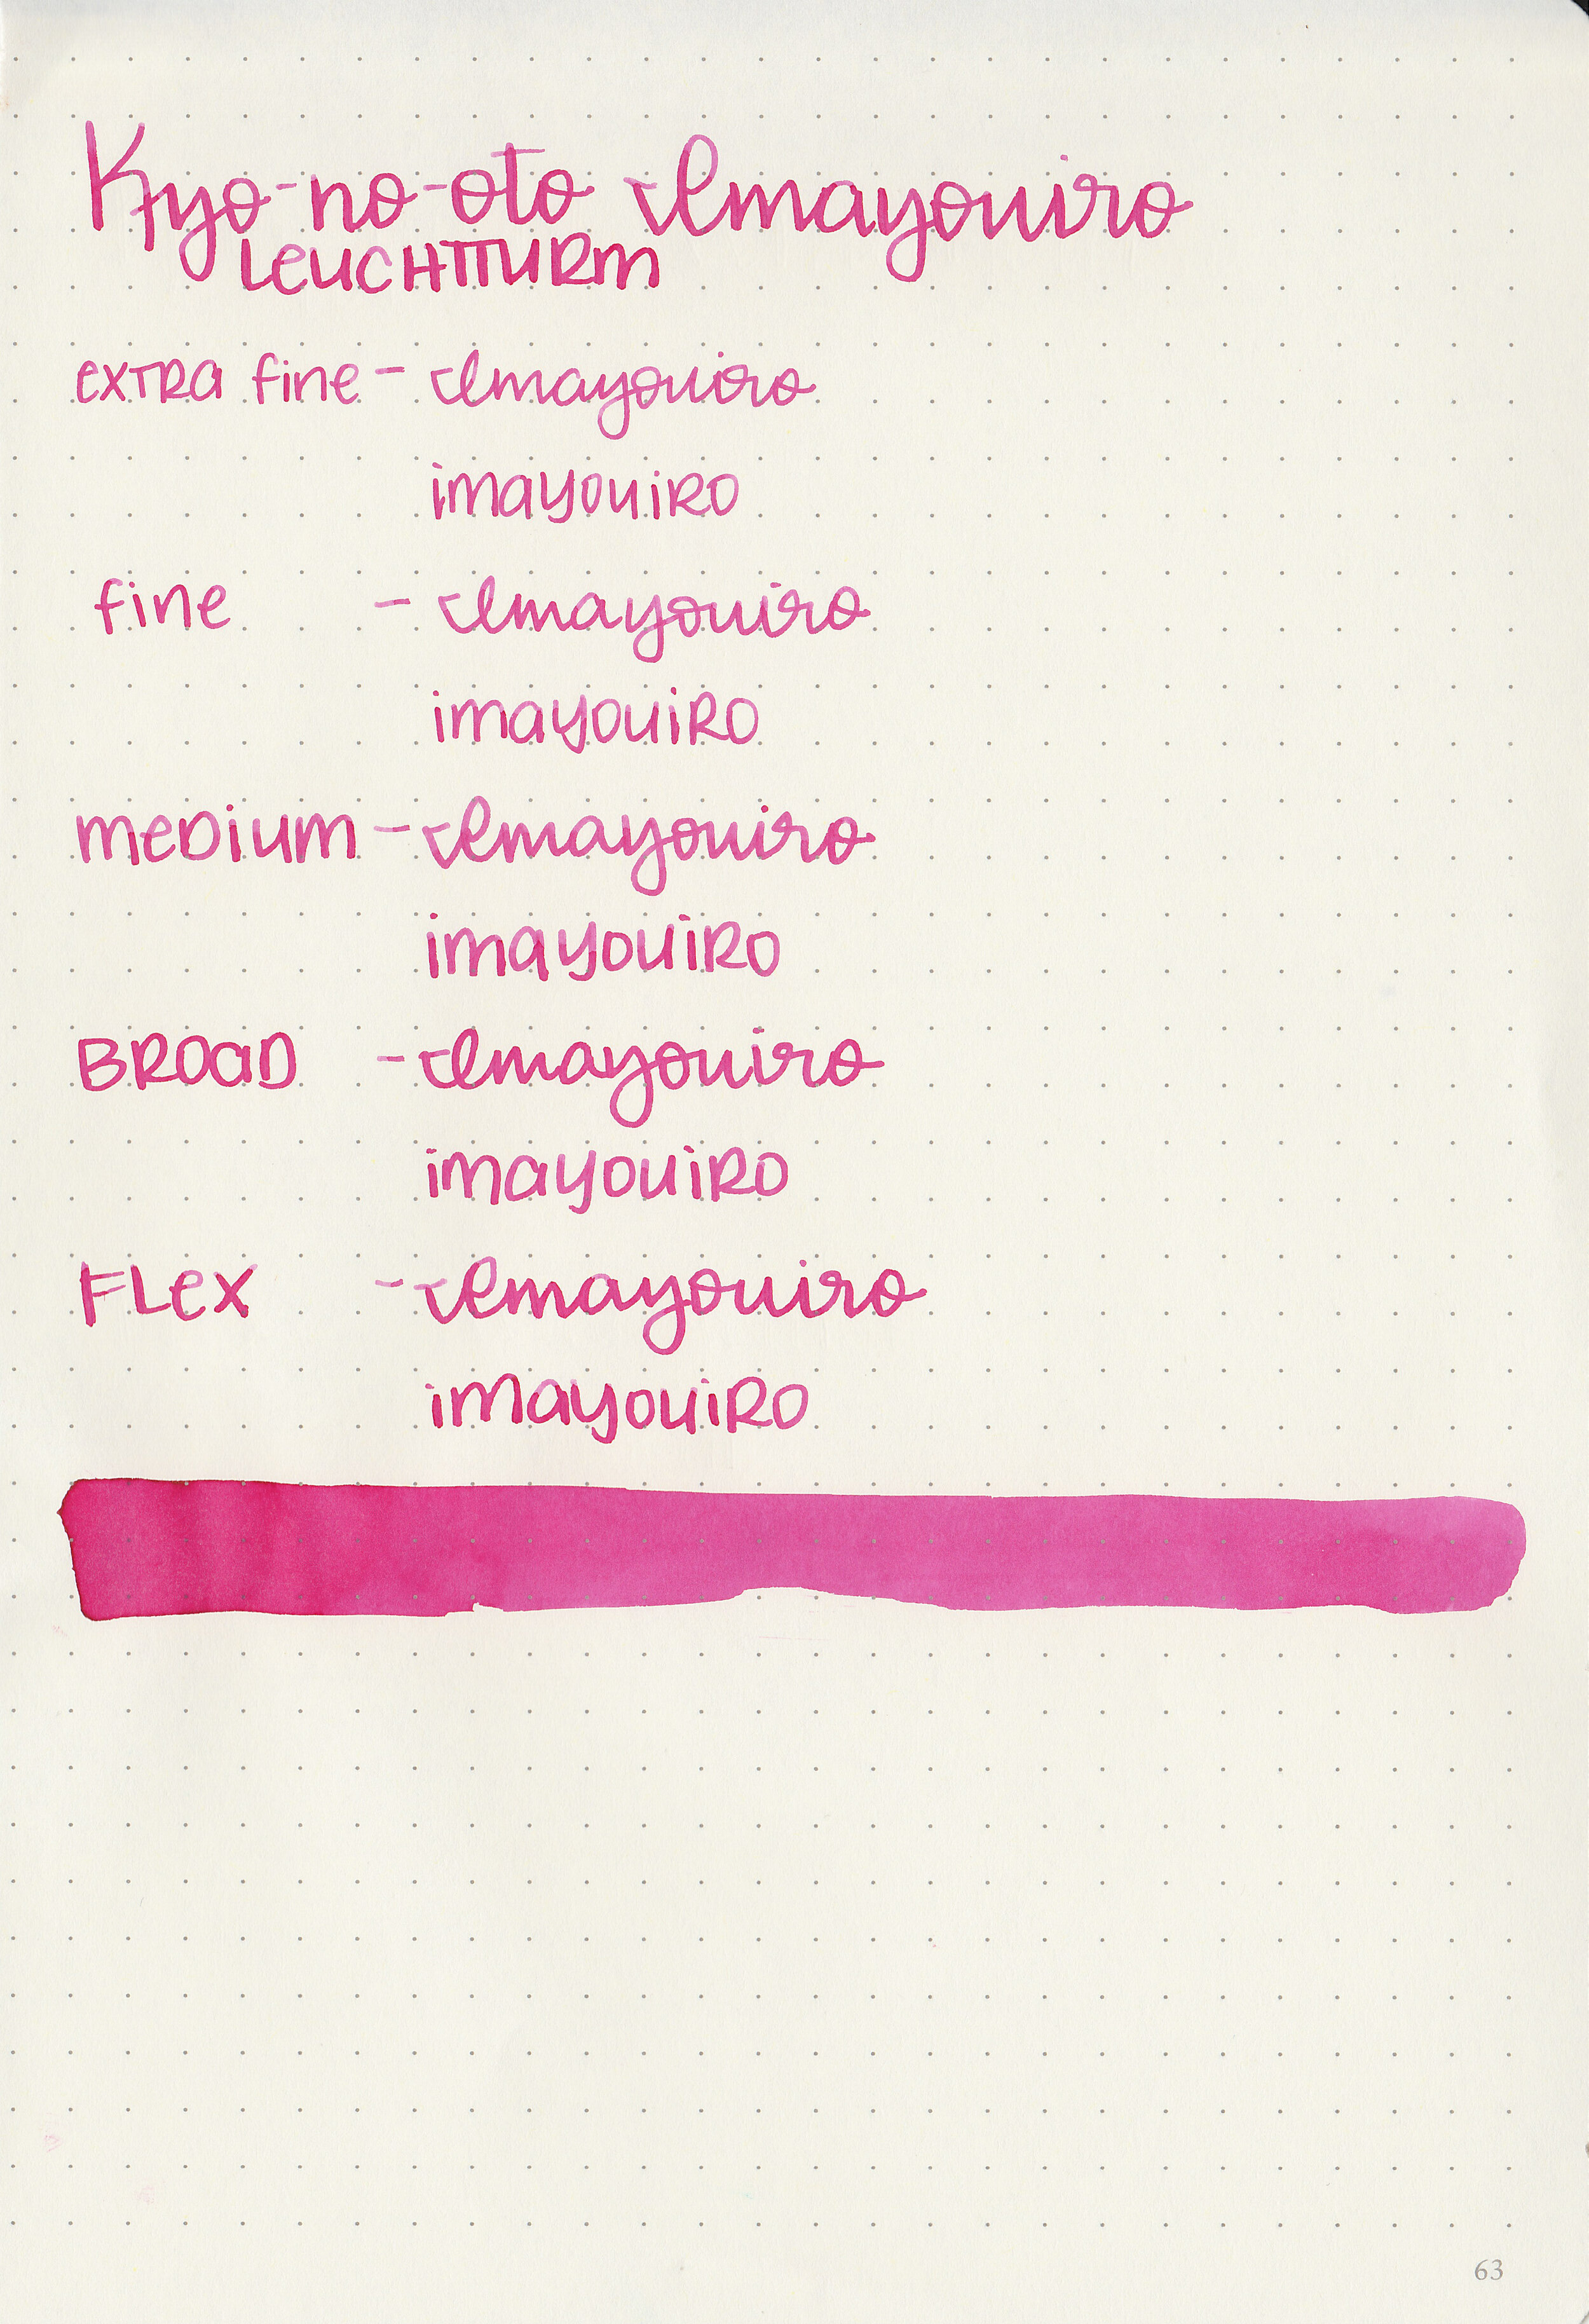 Kyo-no-oto Imayouiro
LEUCHTTURM
EXTRA fine - Imayouiro
imayouiRO
fine - Imayouiro
imayouiRO
meDium - Imayouiro
imayouiRO
BROaD - Imayouiro
imayouiRO
FLex - Imayouiro
imayouiRO
63